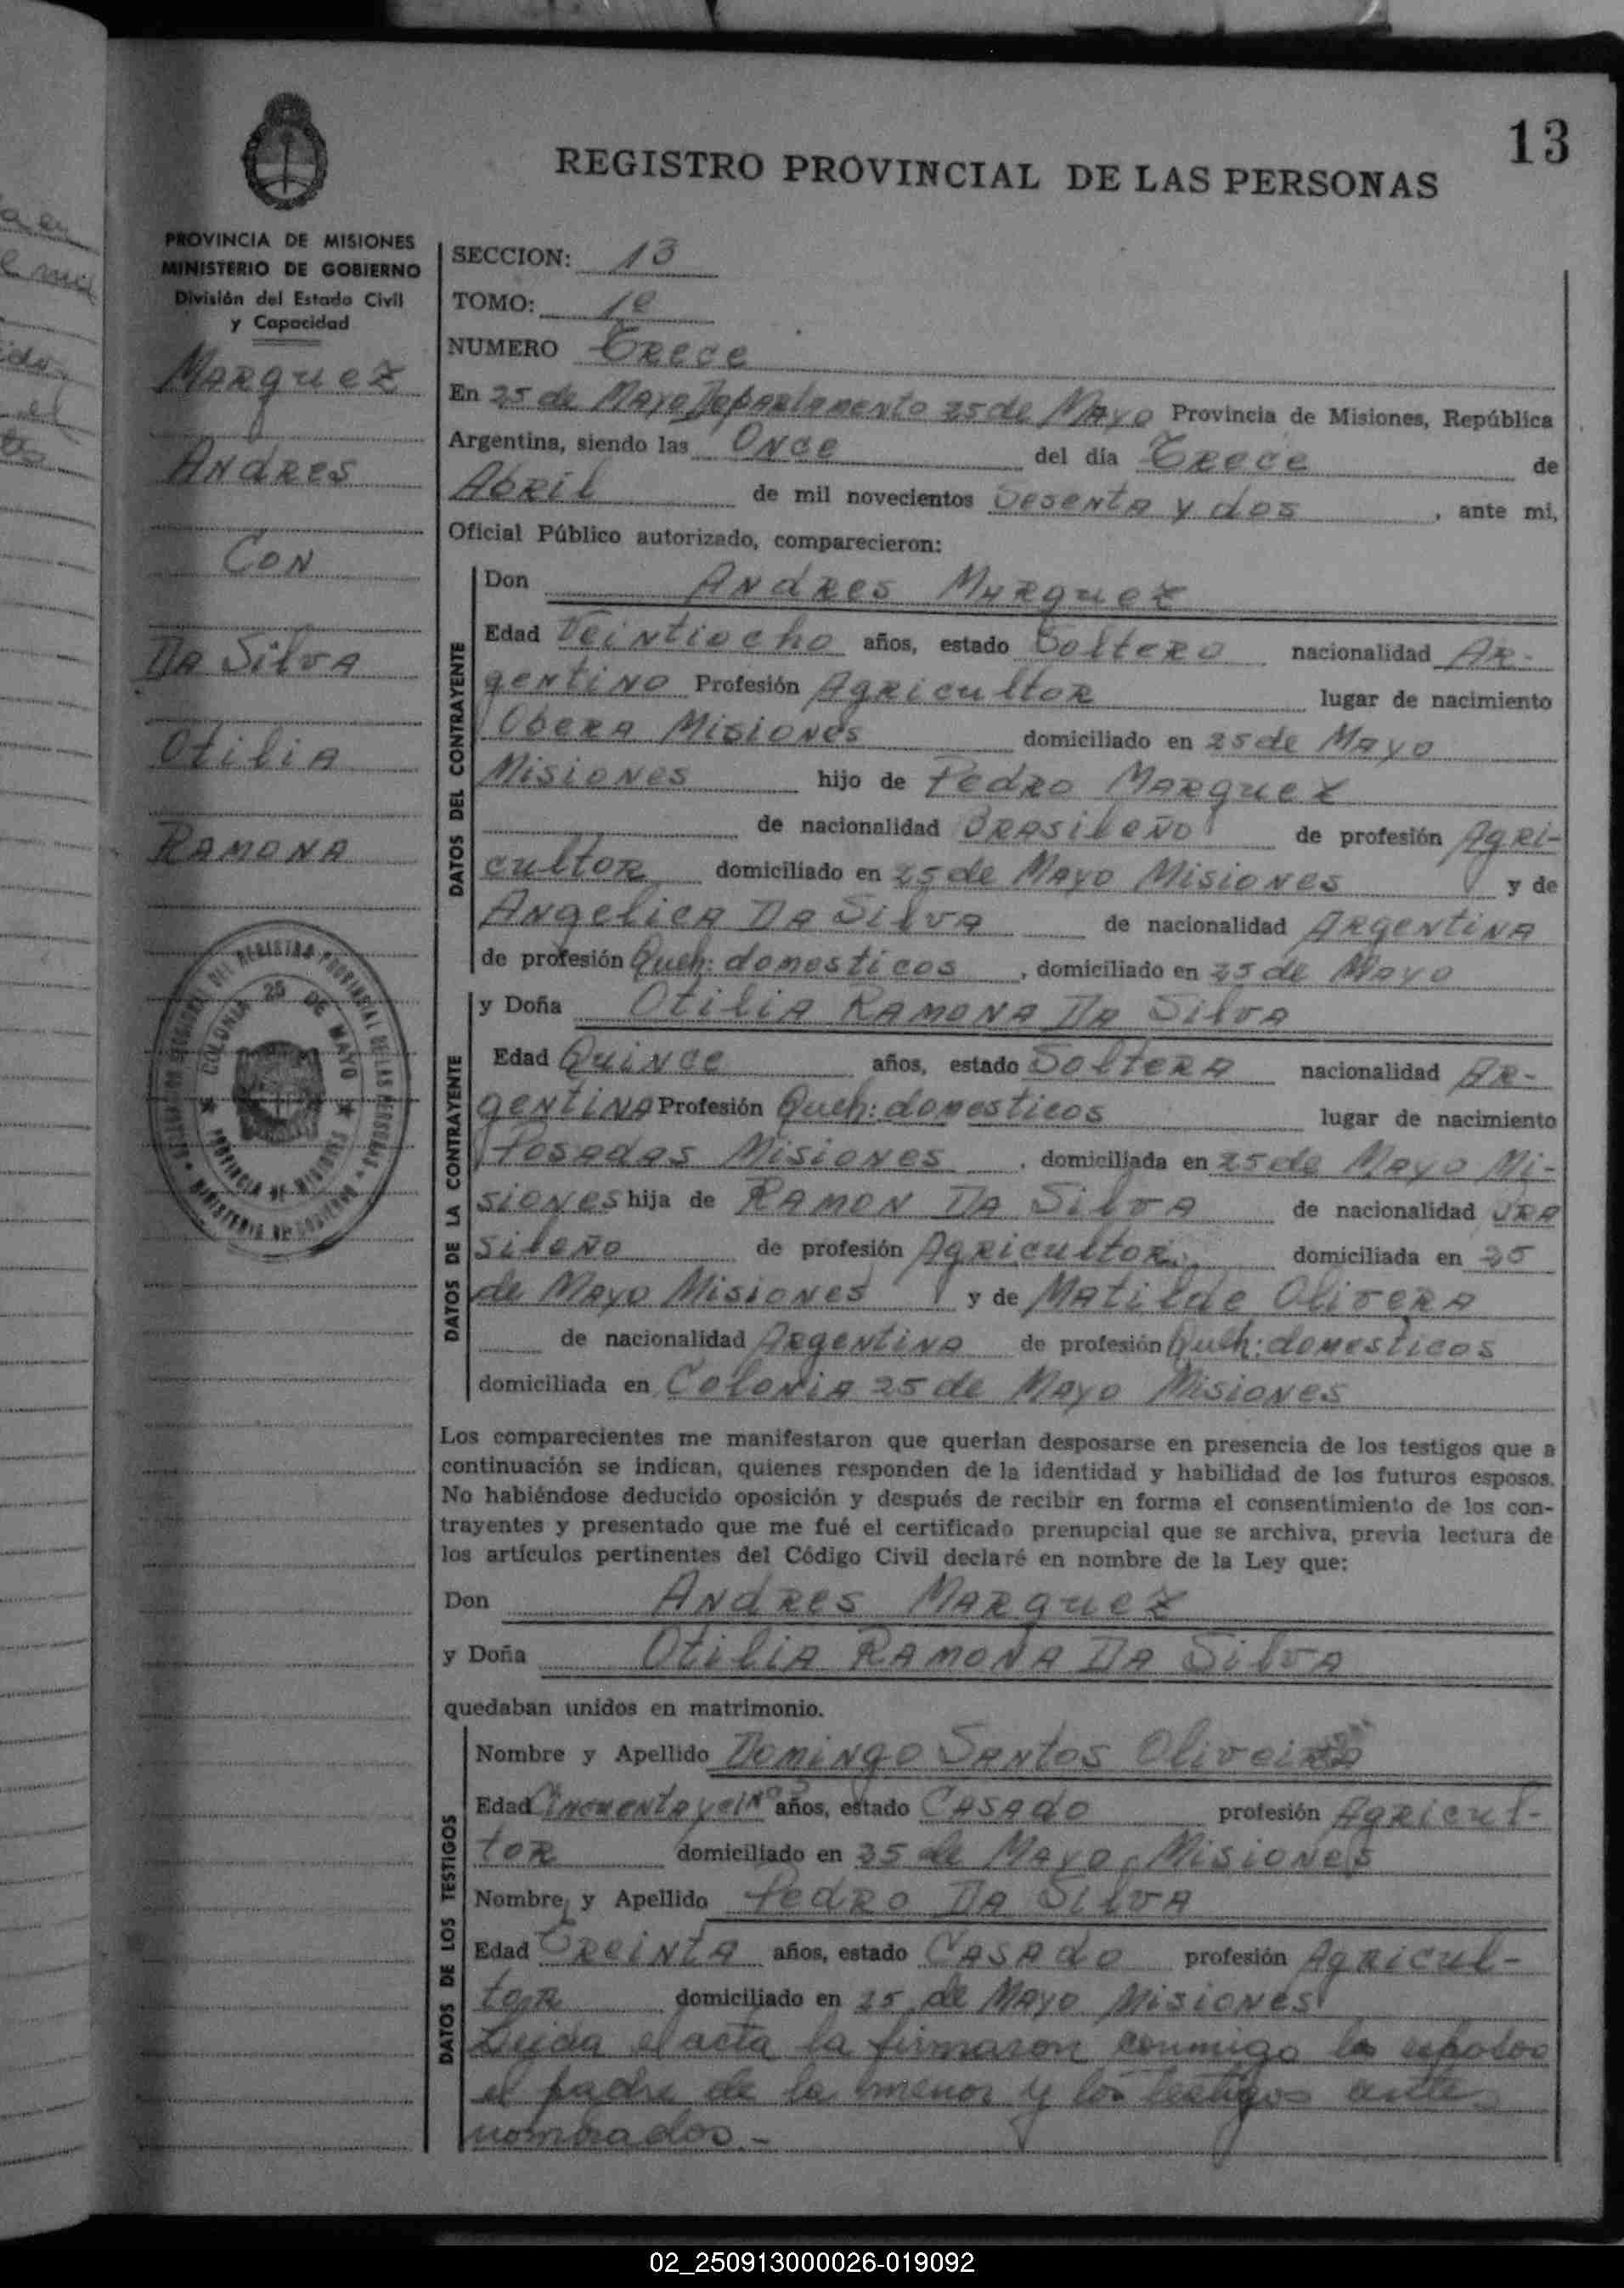 13
REGISTRO PROVINCIAL DE LAS PERSONAS
PROVINCIA DE MISIONES
MINISTERIO DE GOBIERNO
División del Estado Civil
y Capacidad
MARquez
ANdRes
CON
DA SilvA
OtiliA
RAMONA
COLONIA 25 DE MAYO
PROVINCIA DE MISIONES
MINISTERIO DE GOBIERNO
SECCION: 13
TOMO: 1º
NUMERO TRece
En 25 de Mayo Departamento 25 de Mayo Provincia de Misiones, República
Argentina, siendo las ONce del día TRece de
AbRil de mil novecientos SesentA y dos, ante mi,
Oficial Público autorizado, comparecieron:
DATOS DEL CONTRAYENTE
Don ANdRes MARquez
Edad Veintiocho años, estado SolteRo nacionalidad AR-
gentiNo Profesión AgRicultoR lugar de nacimiento
ObeRA MisioNes domiciliado en 25 de Mayo
MisioNes hijo de PedRo MARquez
de nacionalidad BRAsileño de profesión AgRi-
cultoR domiciliado en 25 de Mayo MisioNes y de
ANgelicA DA SilvA de nacionalidad ARgentiNA
de profesión Queh: domesticos, domiciliado en 25 de Mayo
DATOS DE LA CONTRAYENTE
y Doña OtiliA RAMONA DA SilvA
Edad QuiNce años, estado SolteRA nacionalidad AR-
gentiNA Profesión Queh: domesticos lugar de nacimiento
PosAdAs MisioNes, domiciliada en 25 de Mayo Mi-
sioNes hija de RAMON DA SilvA de nacionalidad BRA
sileño de profesión AgRicultoR domiciliada en 25
de Mayo MisioNes y de MAtilde OliveRA
de nacionalidad ARgentiNA de profesión Queh: domesticos
domiciliada en ColoNiA 25 de Mayo MisioNes
Los comparecientes me manifestaron que querían desposarse en presencia de los testigos que a
continuación se indican, quienes responden de la identidad y habilidad de los futuros esposos.
No habiéndose deducido oposición y después de recibir en forma el consentimiento de los con-
trayentes y presentado que me fué el certificado prenupcial que se archiva, previa lectura de
los artículos pertinentes del Código Civil declaré en nombre de la Ley que:
Don ANdRes MARquez
y Doña OtiliA RAMONA DA SilvA
quedaban unidos en matrimonio.
DATOS DE LOS TESTIGOS
Nombre y Apellido DomiNgo SANtos
Edad años, estado CASAdo profesión AgRicul-
toR domiciliado en 25 de Mayo, MisioNes
Nombre y Apellido PedRo DA SilvA
Edad TReiNtA años, estado CASAdo profesión AgRicul-
toR domiciliado en 25 de Mayo MisioNes
Leida el acta la firmaron conmigo los esposos
el padre de la menor y los testigos antes
nombrados.-
02_250913000026-019092